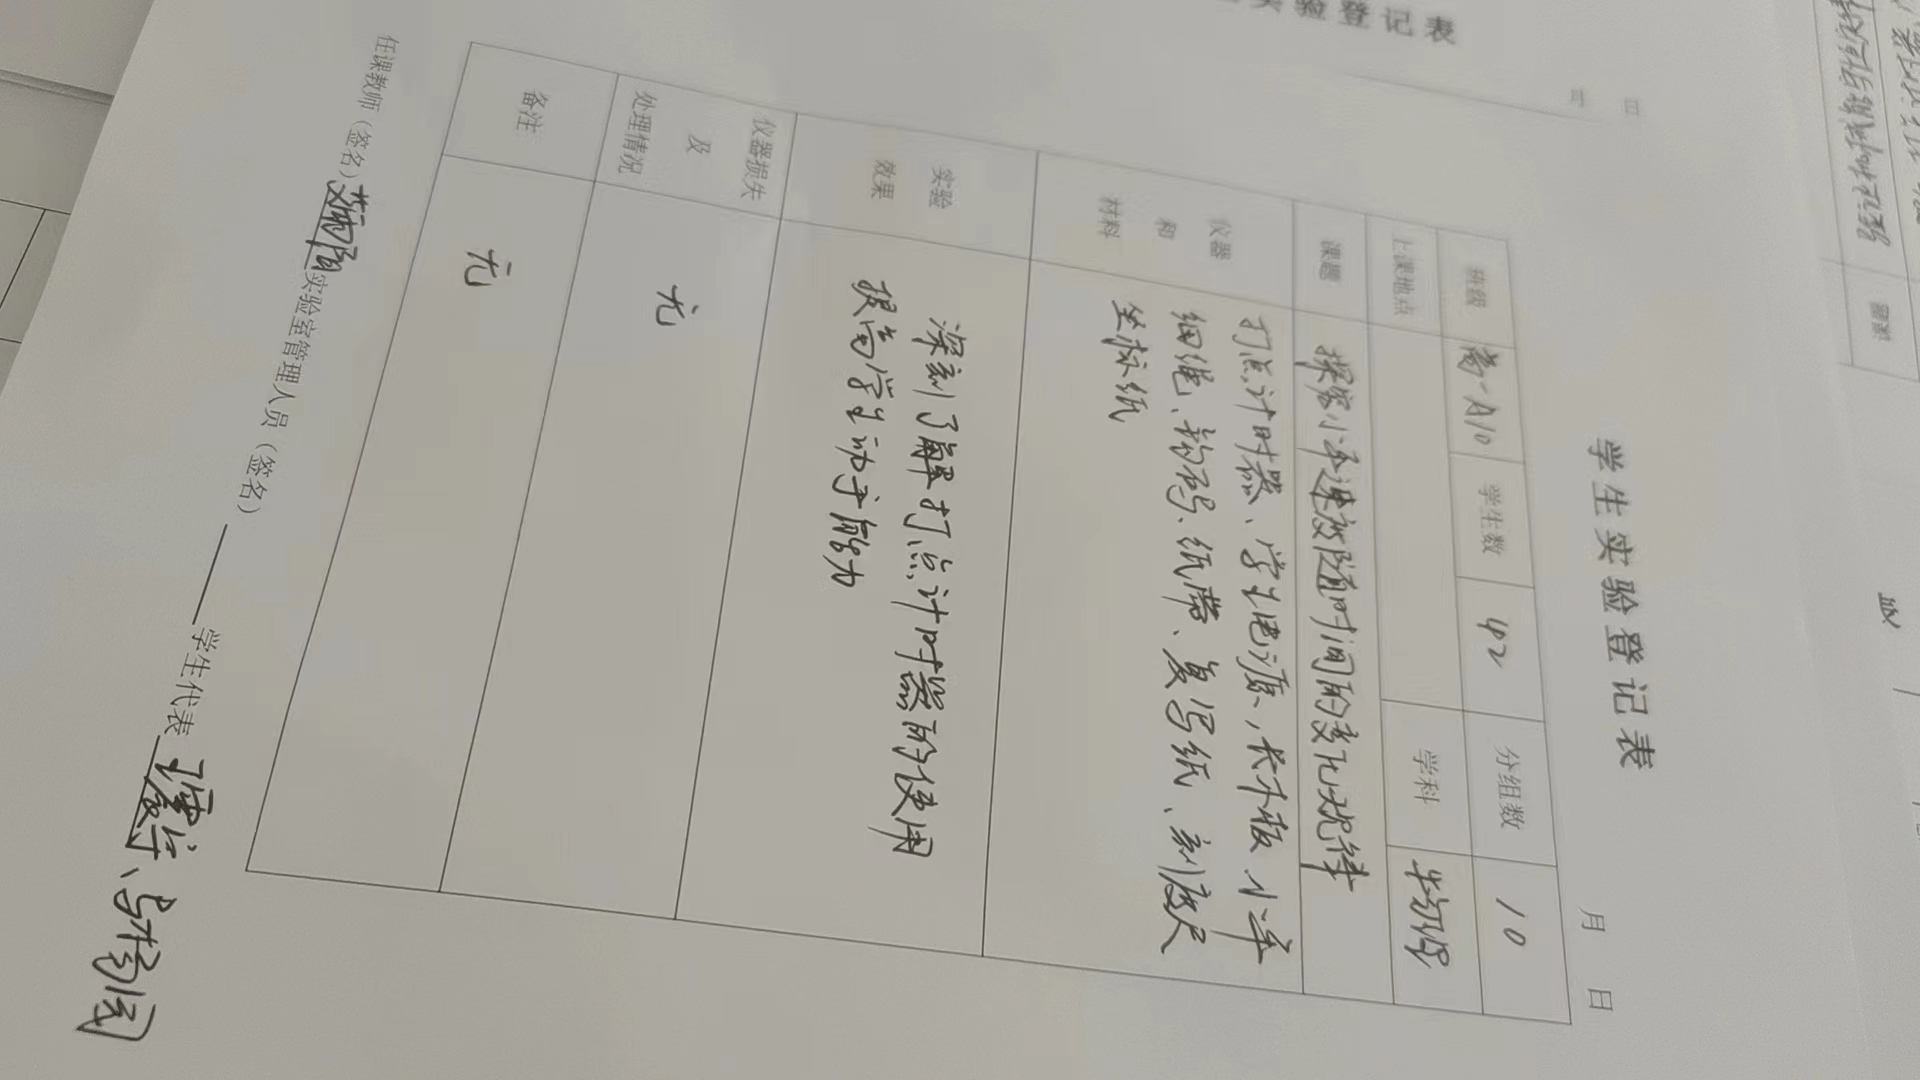 验登记表
学生实验登记表
月 日
班级 高一A10 学生数 42 分组数 10
上课地点 学科 物理
课题 探究小车速度随时间的变化规律
仪器和材料
打点计时器、学生电源、长木板 小车
细绳、钩码、纸带、复写纸、刻度尺
坐标纸
实验效果
深刻了解打点计时器的使用
提高学生动手能力
仪器损失及处理情况 无
备注 无
任课教师（签名） 实验室管理人员（签名） 学生代表